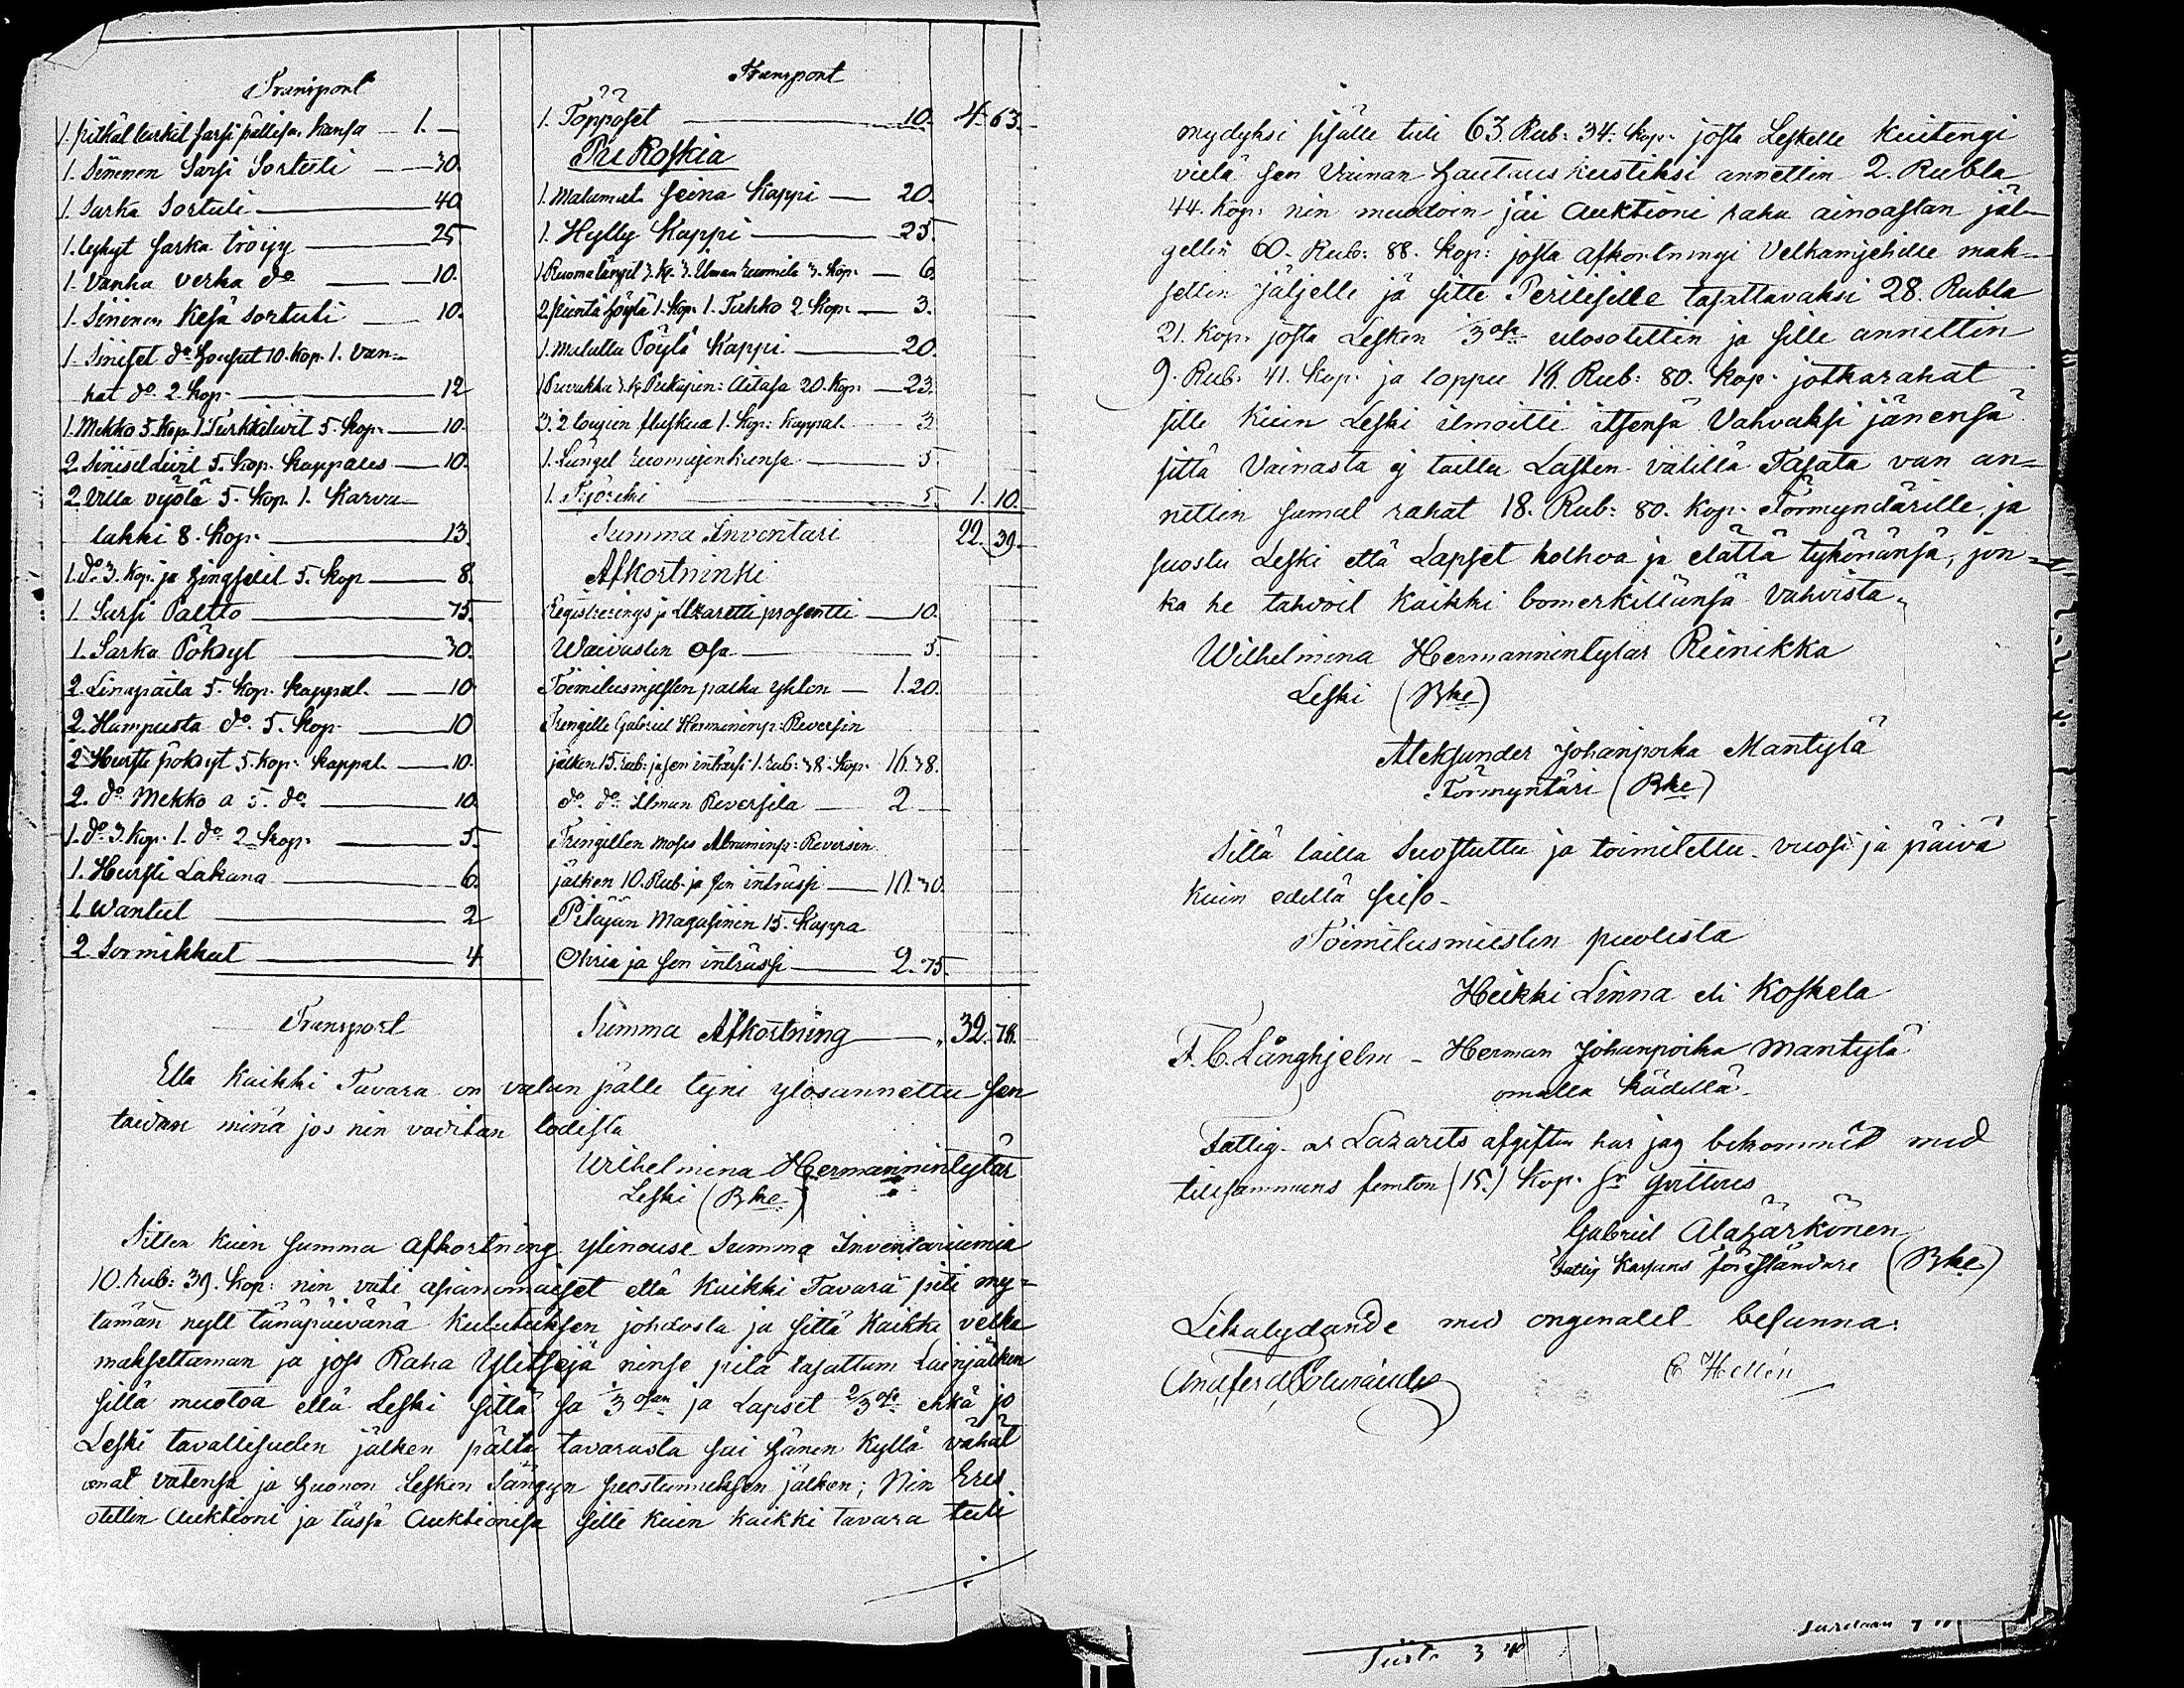 Transport
1. pitkät turkit sarsi pällisen kansa — 1. —
1. Sininen Sarsi Sortuti — 30.
1. Sarka Sortuti — 40
1. lyhyt sarka tröijy — 25
1. Vanha verka do — 10.
1. Sininen Kesä sortuti — 10.
1. Siniset do housut 10. Kop. 1. van-
hat do. 2. Kop. — 12
1. Mekko 5. Kop. 1. Turkkilivit 5. Kop. — 10.
2. Siniset Livit 5. Kop. Kappales — 10.
2. Villa vyötä 5. Kop. 1. Karva
lakki 8. Kop. — 13.
1. do. 3. Kop. ja hingselit 5. Kop — 8.
1. Sarsi Paltto — 75.
1. Sarka Pöksyt — 30.
2. Linapaita 5. Kop. Kappal. — 10
2. Hampusta do. 5. Kop — 10
2 Hursti pöksyt 5. Kop. Kappal. — 10.
2. do Mekko a 5. do — 10.
1. do. 3. Kop. 1. do 2 Kop. — 5.
1. Hursti Lakana — 6.
1. Wantut — 2
2. Sormikkat — 4
Transport
Transport
1. Töppöset — 10. 4. 63.
Pu Koskia
1. Malamat seina Kappi — 20.
1. Hylly Kappi — 25.
1 Ruomalängit 3. K. 3. Ilman ruomita 3. Kop. — 6.
2. pientä höylä 1. Kop. 1. Tuhko 2 Kop. — 3.
1. Malattu Pöytä Kappi — 20.
3. 2 toupin fluskua 1. Kop: Kappal. — 3
1. Längel ruomajenkansa — 5
1. Työrehi — 5 1. 10.
Summa Inventari 22. 39.
Afkortninki
Registrerings ja Lazaretti prosentti — 10.
Waivasten osa — 5.
Toimitusmiesten palka yhton — 1. 20.
Trengille Gabriel Hermaninp: Reversin
jälken 15. rub: ja sen inträsi 1. rub: 38. Kop. 16. 38.
do. do. Ilman Reversita — 2 —
Trengillen Moses Abraminp: Reversin
jälken 10. Rub. ja sen inträssi — 10. 30.
Pitäjän Magasinin 15. Kappa
Ohria ja sen inträssi — 2. 75.
Summa Afkortning — 32. 78.
Että kaikki Tavara on valan pälle tyni ylosannettu sen
taidan minä jos nin vaditan todista
Wilhelmina Hermannintytär
Leski (Bke)
Sitten kuin summa Afkortning ylinouse summa Inventariumia
10. rub: 39. Kop: nin vati asianomaiset että kaikki Tavara piti my-
tämän nytt tänäpäivänä Kulutuksen johdosta ja sittä kaikki velka
maksettaman ja joss Raha Ylitseja ninse pitä tasattam Lainjälken
sillä muotoa että Leski sittä sa 1/3 osan ja Lapset 2/3 osa ehkä jo
Leski tavallisuden jälken pältä tavarasta sai hänen Kyllä vähät
omat vatensa ja huonon Lesken Sängyn suostumuksen jälken; Nin Eres
otettin Auktioni ja tässä Auktionisa sille kuin kaikki tavara tuli
mydyksi sisälle tuli 63. Rub: 34. Kop: josta Leskelle Kuitengi
vielä sen Vainan hautaus kustiksi annettin 2. Rubla
44. Kop: nin muodoin jäi Auktioni raha ainoastan jäl-
gellä 60. Rub: 88. Kop: josta afkortningi Velkamjehille mak-
settin jäljelle jä sitte Perilisille tasattavaksi 28. Rubla
21. Kop. josta Lesken 1/3 osa ulosotettin ja sille annettin
9. Rub: 41. Kop. ja loppu 18. Rub: 80. Kop. jotkarahat
sille kuin Leski ilmoitti itsensä Vahvaksi jänensä
sittä Vainasta ej tailla Lasten välillä Tasata van an-
nettin samat rahat 18. Rub: 80. Kop. Förmyndärille, ja
suostu Leski että Lapset holhoa ja elättä tykönänsä, jon-
ka he tahdoit kaikki bomerkillänsä Vahvista.
Wilhelmina Hermannintytar Reinikka
Leski (Bke)
Aleksander Johanpoika Mantylä
Förmyntäri (Bke)
Sillä tailla Suostuttu ja toimitettu. vuosi ja päivä
kuin edellä seiso.
Toimitusmiesten puolesta
Heikki Linna eli Koskela
F. C. Långhjelm — Herman Johanpoika Mantylä
omalla kädellä.
Fattig- o Lazarets afgiften har jag bekommit med
tillsammans femton (15.) Kop. Sr qvitteras
Gabriel Alahärkönen
Fattig Kassans föreståndare (Bke)
Likalydande med orginalet befunna:
C Hellén
Siirto 3